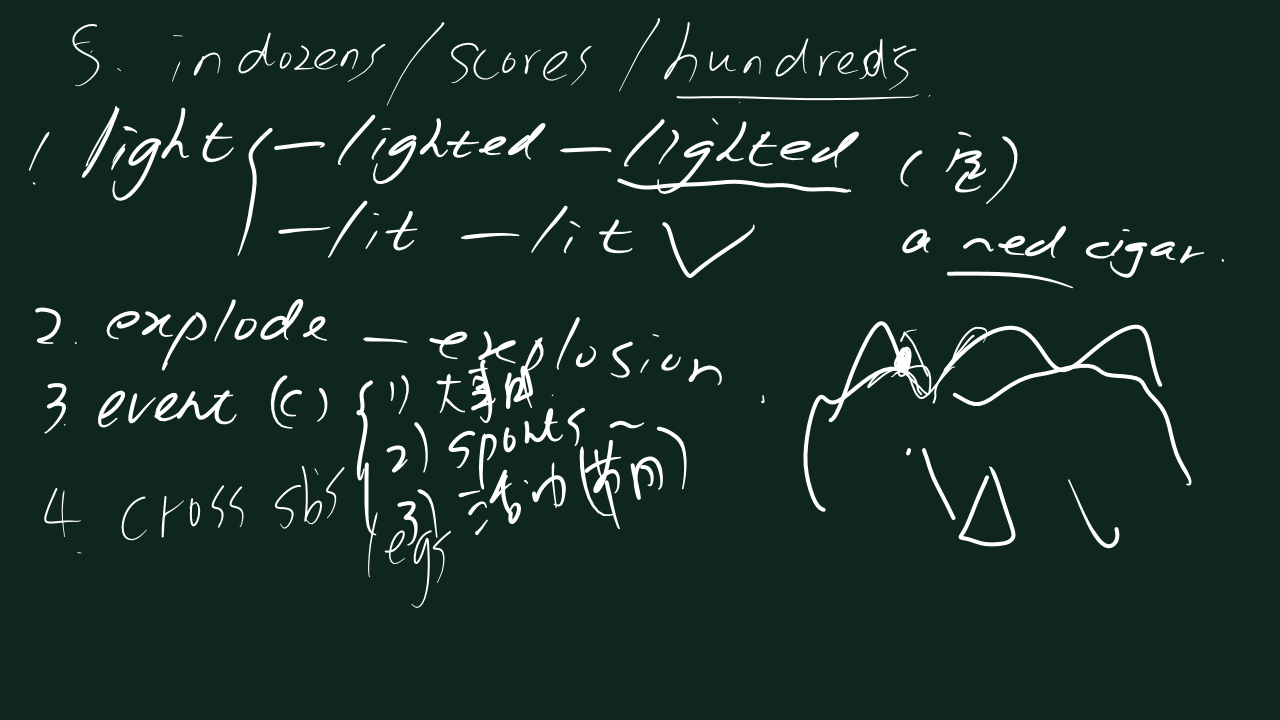 5. in dozens / scores / hundreds
1. light { – lighted – lighted (定)
– lit – lit ✓
a ~ed cigar.
2. explode – explosion
3 event (C) { 1) 大事
2) sports ~
3) 活动
4. cross sb's legs